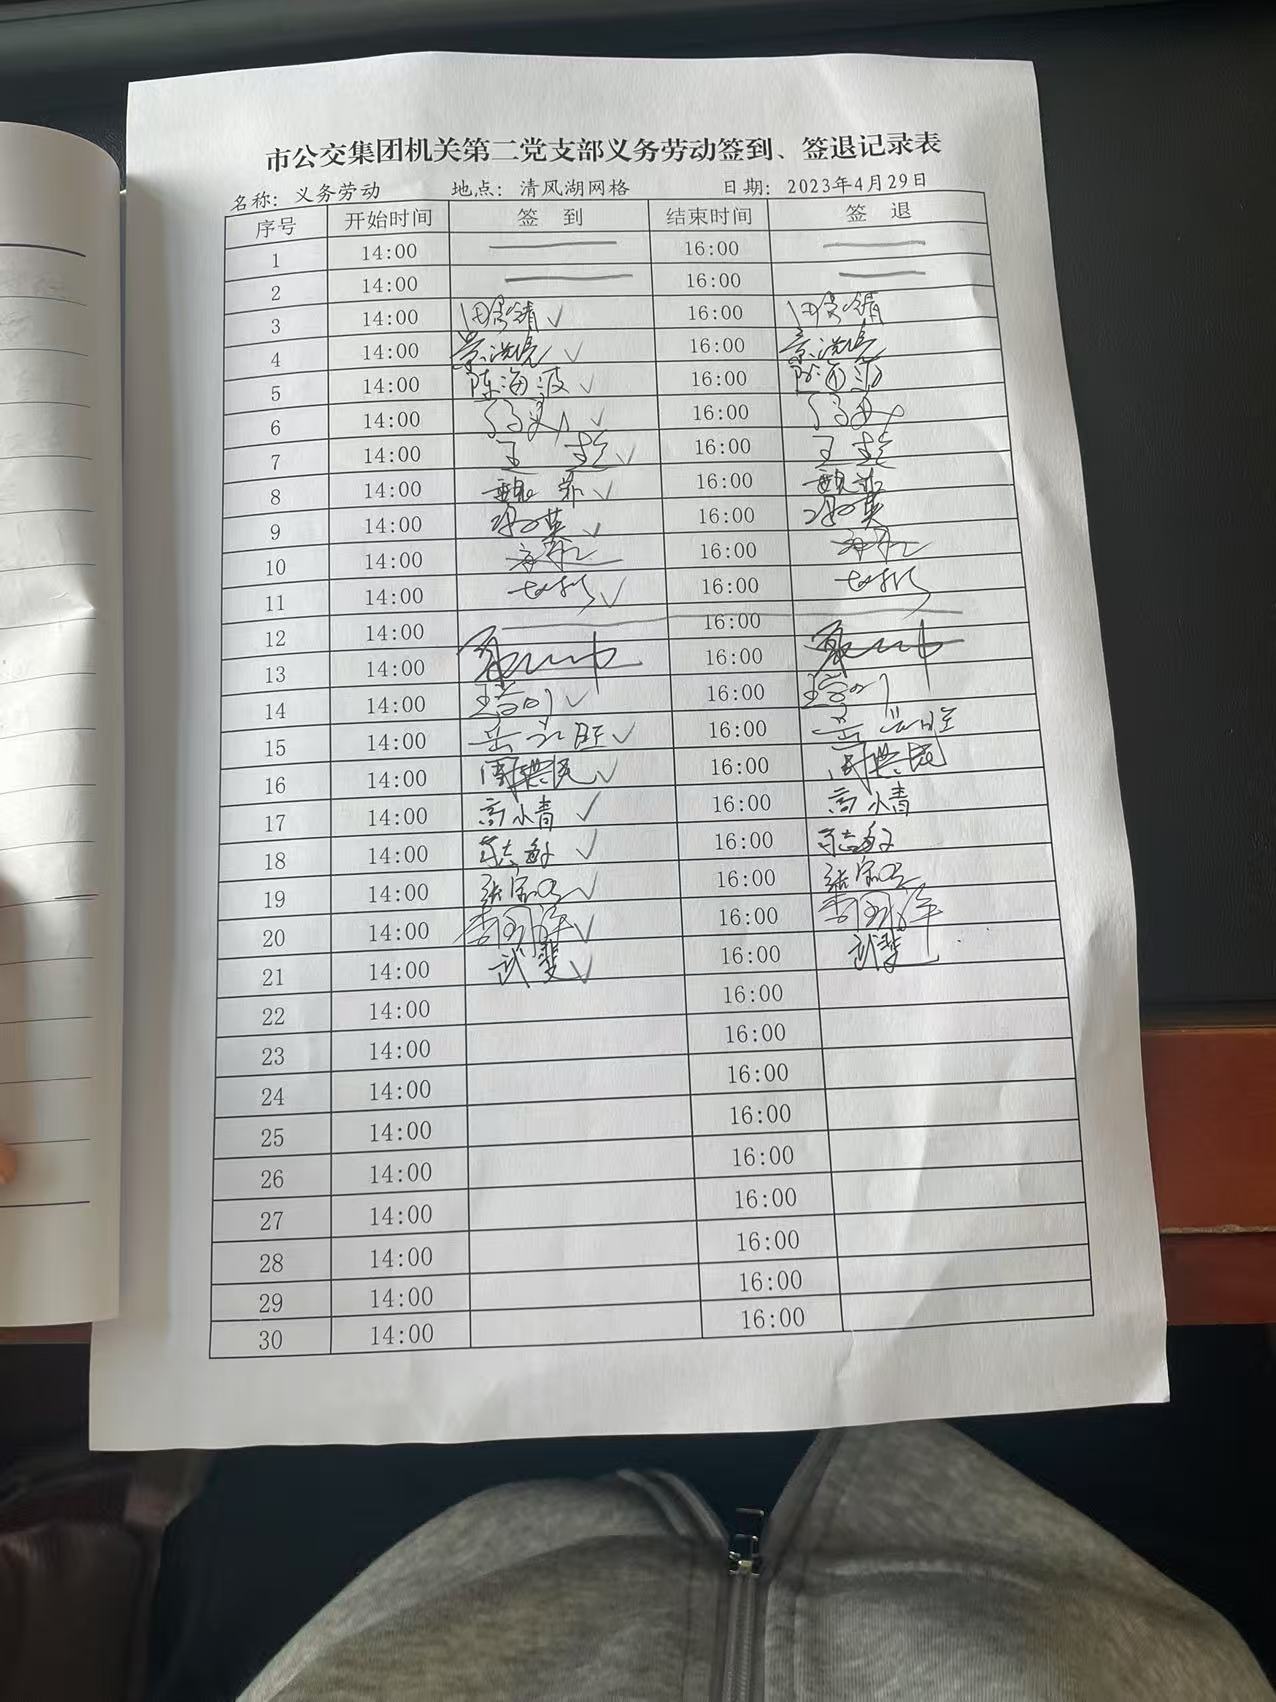 市公交集团机关第二党支部义务劳动签到、签退记录表
名称：义务劳动 地点：清风湖网格 日期：2023年4月29日
序号 开始时间 签 到 结束时间 签 退
1 14:00 16:00
2 14:00 16:00
3 14:00 16:00
4 14:00 16:00
5 14:00 陈海波 ✓ 16:00 陈海波
6 14:00 16:00
7 14:00 王 超 ✓ 16:00 王 超
8 14:00 16:00
9 14:00 16:00
10 14:00 16:00
11 14:00 16:00
12 14:00 16:00
13 14:00 16:00
14 14:00 16:00
15 14:00 岳 16:00 岳
16 14:00 周典民 ✓ 16:00 周典民
17 14:00 高小青 ✓ 16:00 高小青
18 14:00 16:00
19 14:00 张 16:00 张
20 14:00 李 16:00 李
21 14:00 武斐 ✓ 16:00 武斐
22 14:00 16:00
23 14:00 16:00
24 14:00 16:00
25 14:00 16:00
26 14:00 16:00
27 14:00 16:00
28 14:00 16:00
29 14:00 16:00
30 14:00 16:00